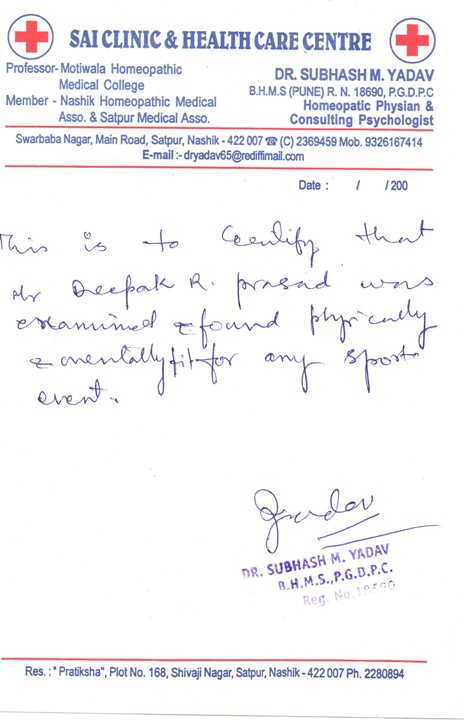 SAI CLINIC & HEALTH CARE CENTRE
Professor- Motiwala Homeopathic
Medical College
Member - Nashik Homeopathic Medical
Asso. & Satpur Medical Asso.
DR. SUBHASH M. YADAV
B.H.M.S (PUNE) R. N. 18690, P.G.D.P.C
Homeopatic Physian &
Consulting Psychologist
Swarbaba Nagar, Main Road, Satpur, Nashik - 422 007 ☎ (C) 2369459 Mob. 9326167414
E-mail :- dryadav65@rediffimail.com
Date : / /200
This is to Certify that
Mr Deepak R. prasad was
examined & found physically
& mentally fit for any sports
event.
DR. SUBHASH M. YADAV
B.H.M.S.,P.G.D.P.C.
Reg. No.18690
Res. : " Pratiksha", Plot No. 168, Shivaji Nagar, Satpur, Nashik - 422 007 Ph. 2280894